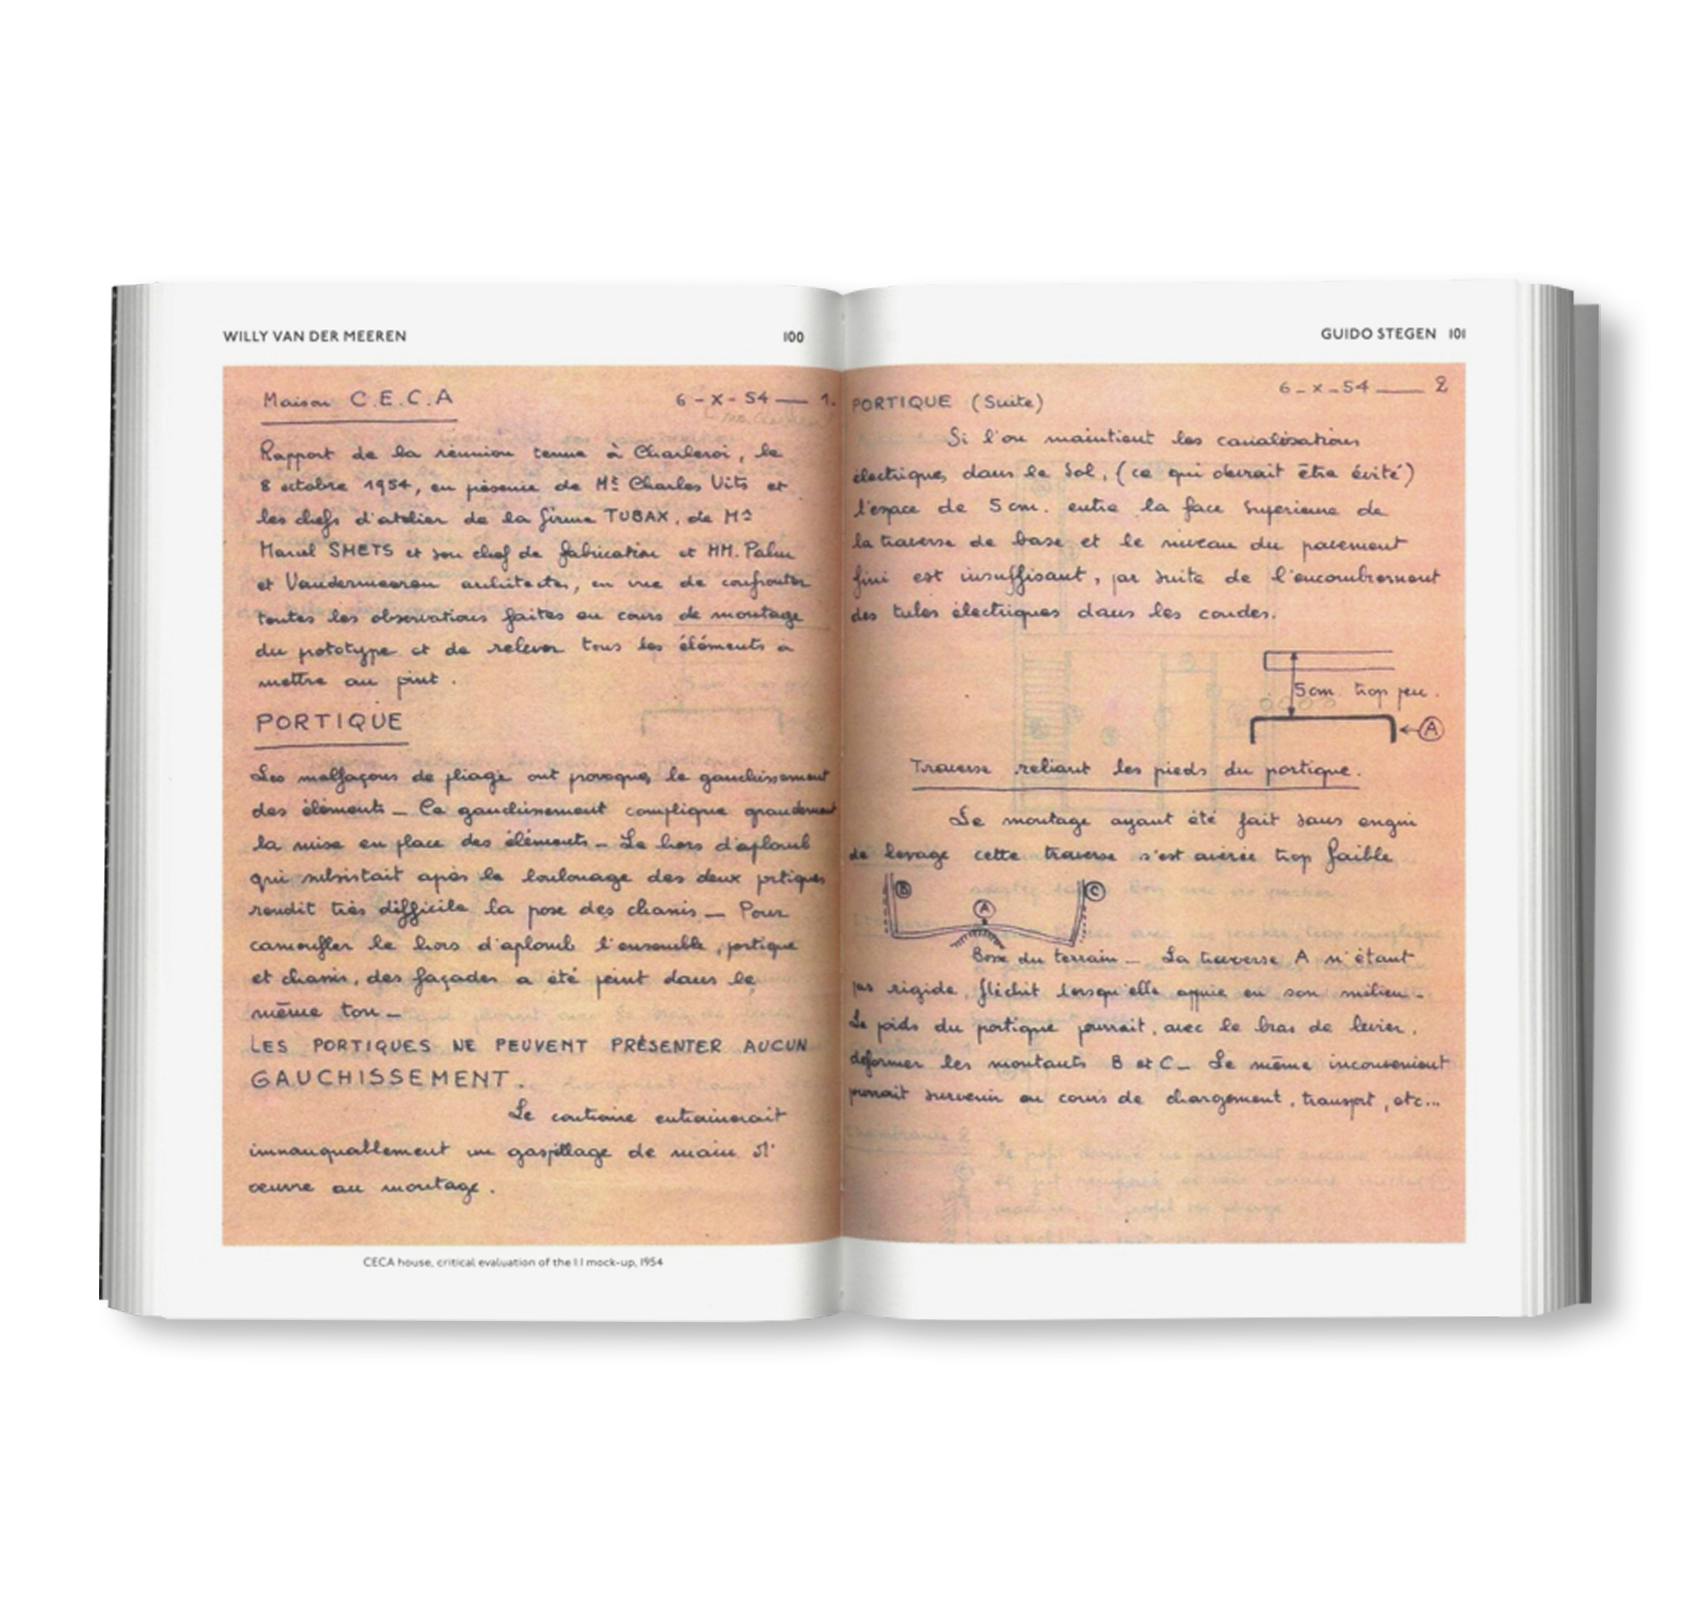 WILLY VAN DER MEEREN 100
Maison C.E.C.A 6-X-54 — 1.
Rapport de la réunion tenue à Charleroi, le
8 octobre 1954, en présence de Mr Charles Vits et
les chefs d'atelier de la firme TUBAX, de Mr
Marcel SMETS et son chef de fabrication et MM. Palm
et Vandermeeren architectes, en vue de confronter
toutes les observations faites au cours de montage
du prototype et de relever tous les éléments à
mettre au point.
PORTIQUE
Les malfaçons de pliage ont provoqué le gauchissement
des éléments - Ce gauchissement complique grandement
la mise en place des éléments - Le hors d'aplomb
qui subsistait après le boulonage des deux portiques
rendit très difficile la pose des chassis - Pour
camoufler le hors d'aplomb l'ensemble, portique
et chassis, des façades a été peint dans le
même ton -
LES PORTIQUES NE PEUVENT PRÉSENTER AUCUN
GAUCHISSEMENT.
Le contraire entrainerait
immanquablement un gaspillage de main d'
œuvre au montage.
CECA house, critical evaluation of the 1:1 mock-up, 1954
GUIDO STEGEN 101
6-X-54 — 2
PORTIQUE (Suite)
Si l'on maintient les canalisations
électriques dans le sol, (ce qui devrait être évité)
l'espace de 5 cm. entre la face supérieure de
la traverse de base et le niveau du pavement
fini est insuffisant, par suite de l'encombrement
des tubes électriques dans les coudes.
5cm trop peu.
A
Traverse reliant les pieds du portique.
Le montage ayant été fait sans engin
de levage cette traverse s'est avérée trop faible
B A C
Bosse du terrain - La traverse A n'étant
pas rigide, fléchit lorsqu'elle appuie en son milieu -
Le poids du portique pourrait, avec le bras de levier,
déformer les montants B et C - Le même inconvénient
pourrait survenir au cours de chargement, transport, etc...